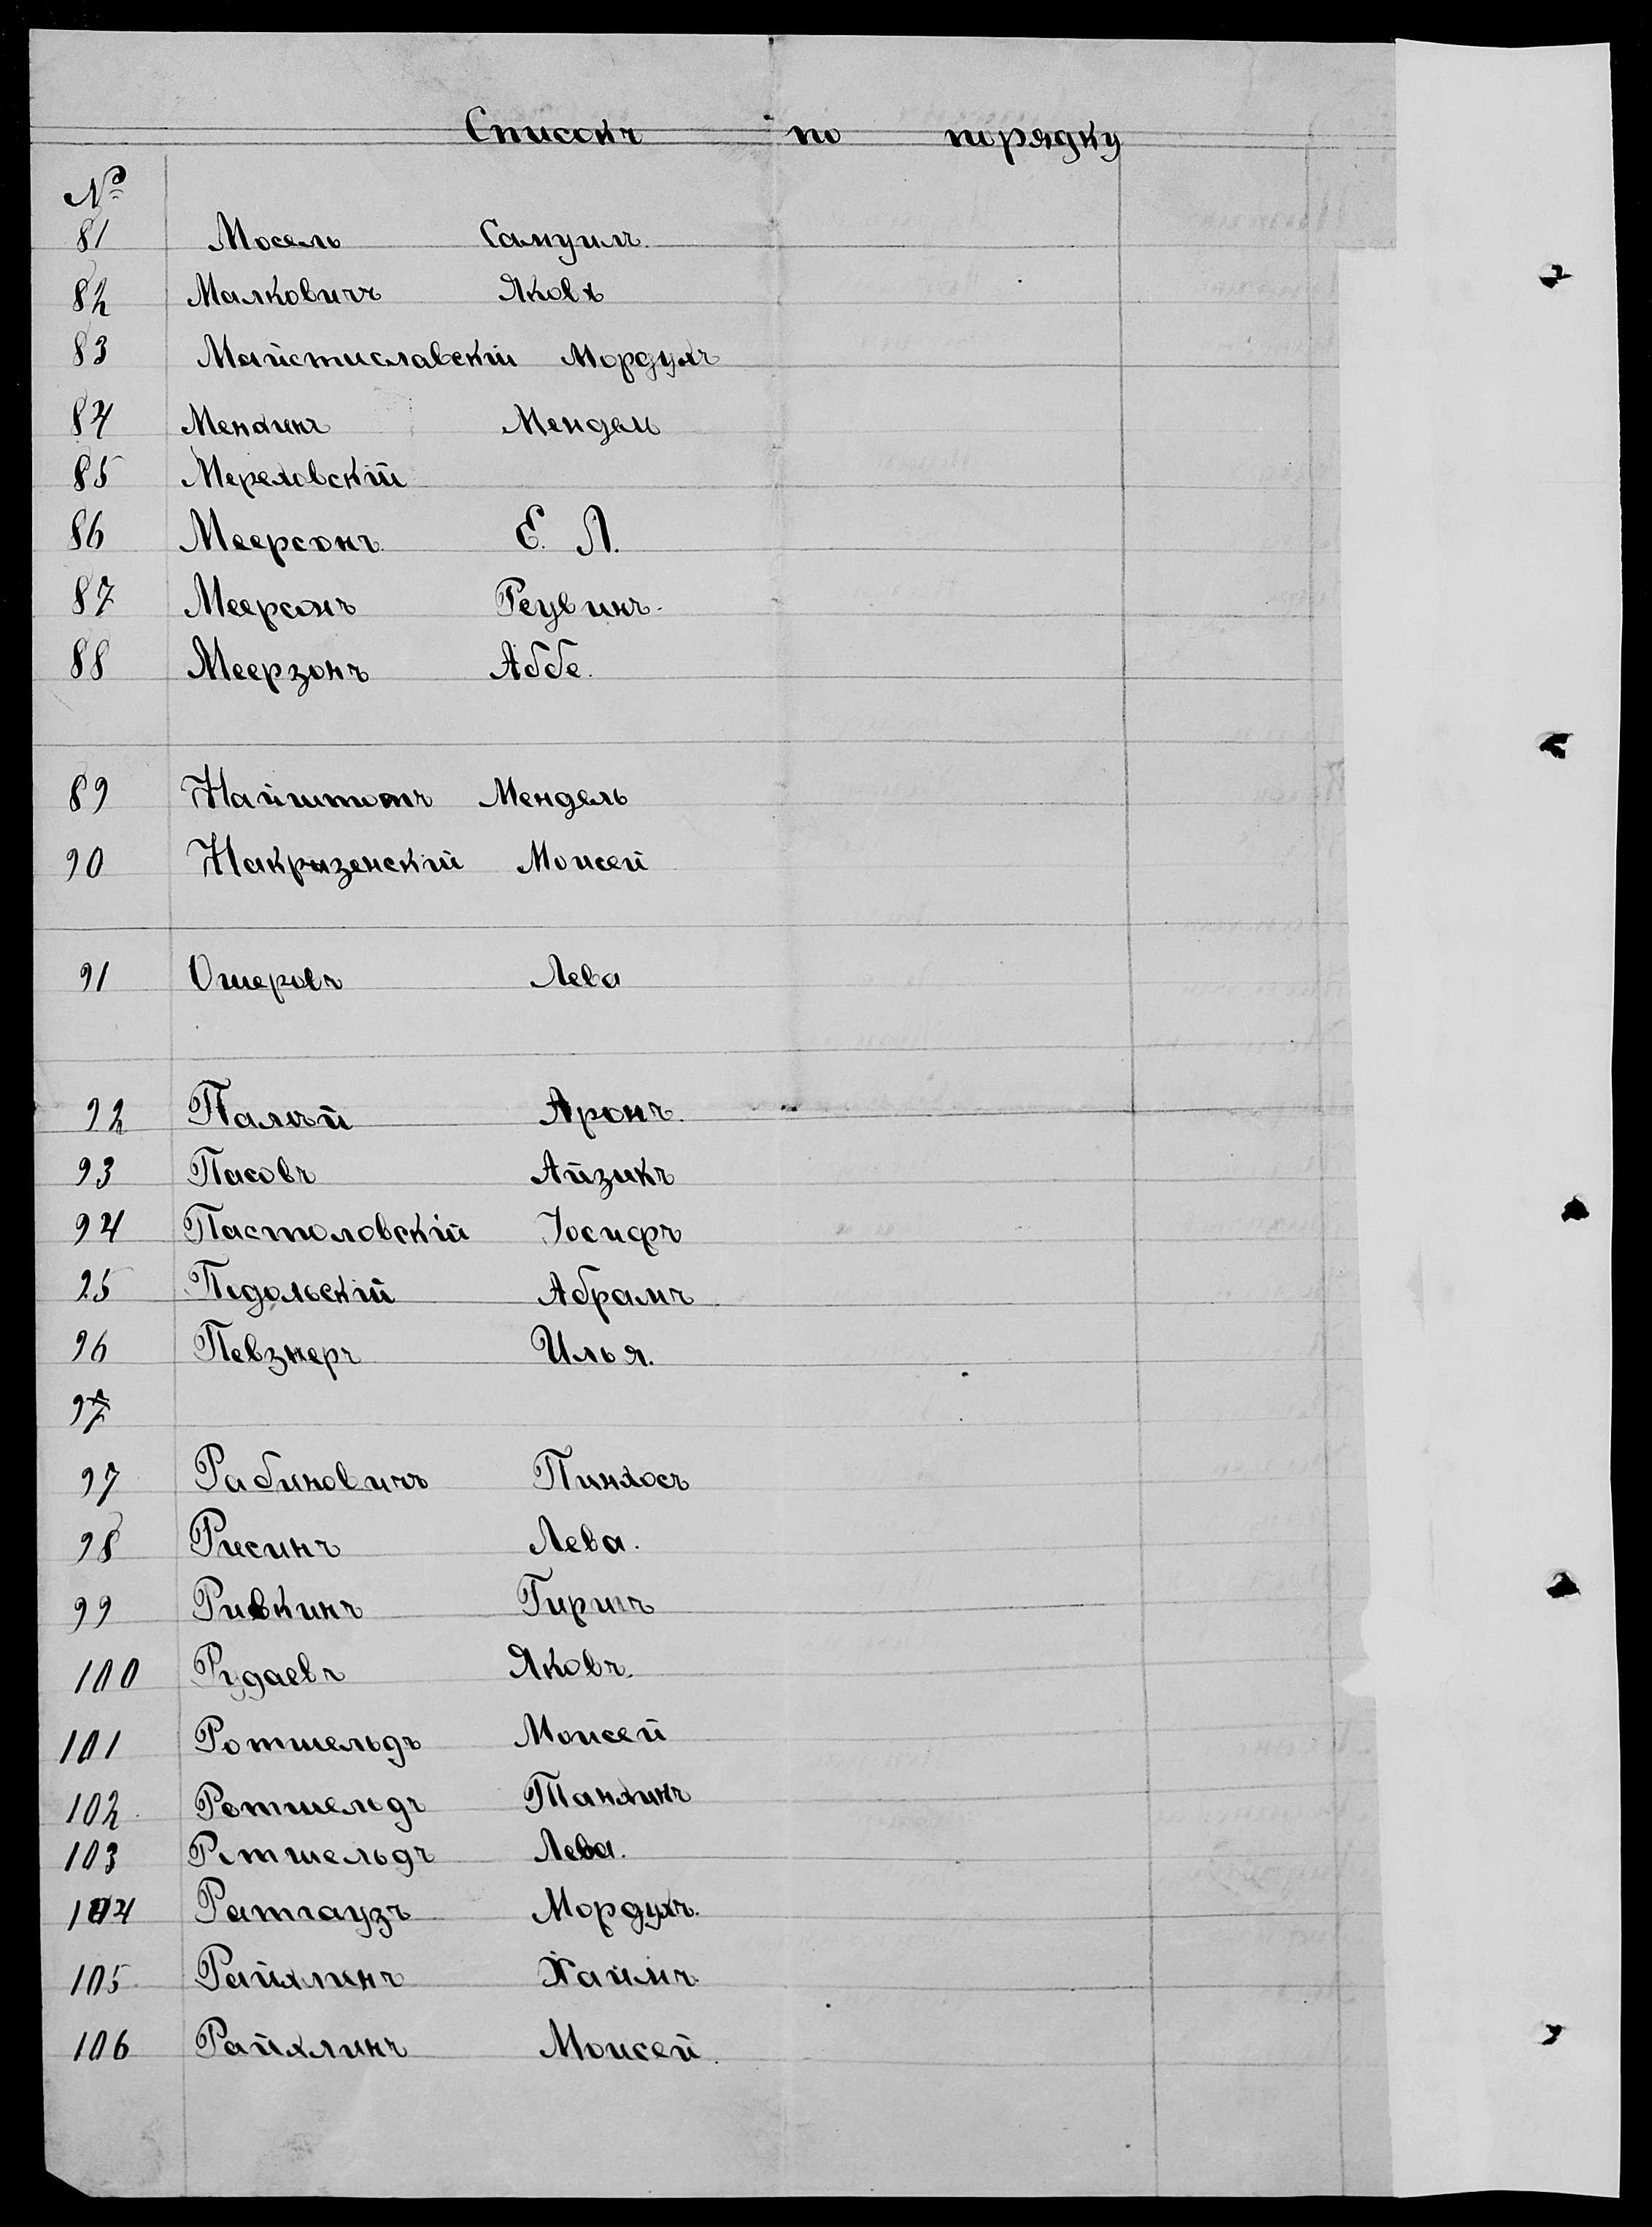 Списокъ по порядку
№
81 Мосель Самуилъ.
82 Малковичъ Яковъ
83 Майстиславскій Мордухъ
84 Менхинъ Мендель
85 Мереховскій
86 Меерсонъ Е. Л.
87 Меерсонъ Реувинъ.
88 Меерзонъ Аббе.
89 Найштотъ Мендель
90 Накрызенскій Моисей
91 Ошеровъ Лева
92 Палѣй Аронъ.
93 Пасовъ Айзикъ
94 Пастоловскій Іосифъ
95 Подольскій Абрамъ
96 Певзнеръ Илья.
97
97 Рабиновичъ Пинхосъ
98 Рисинъ Лева.
99 Ривкинъ Гиршъ
100 Рудаевъ Яковъ.
101 Ротшельдъ Моисей
102 Ротшельдъ Танхинъ
103 Ротшельдъ Лева.
104 Ратгаузъ Мордухъ.
105 Райхлинъ Хаимъ
106 Райхлинъ Моисей.